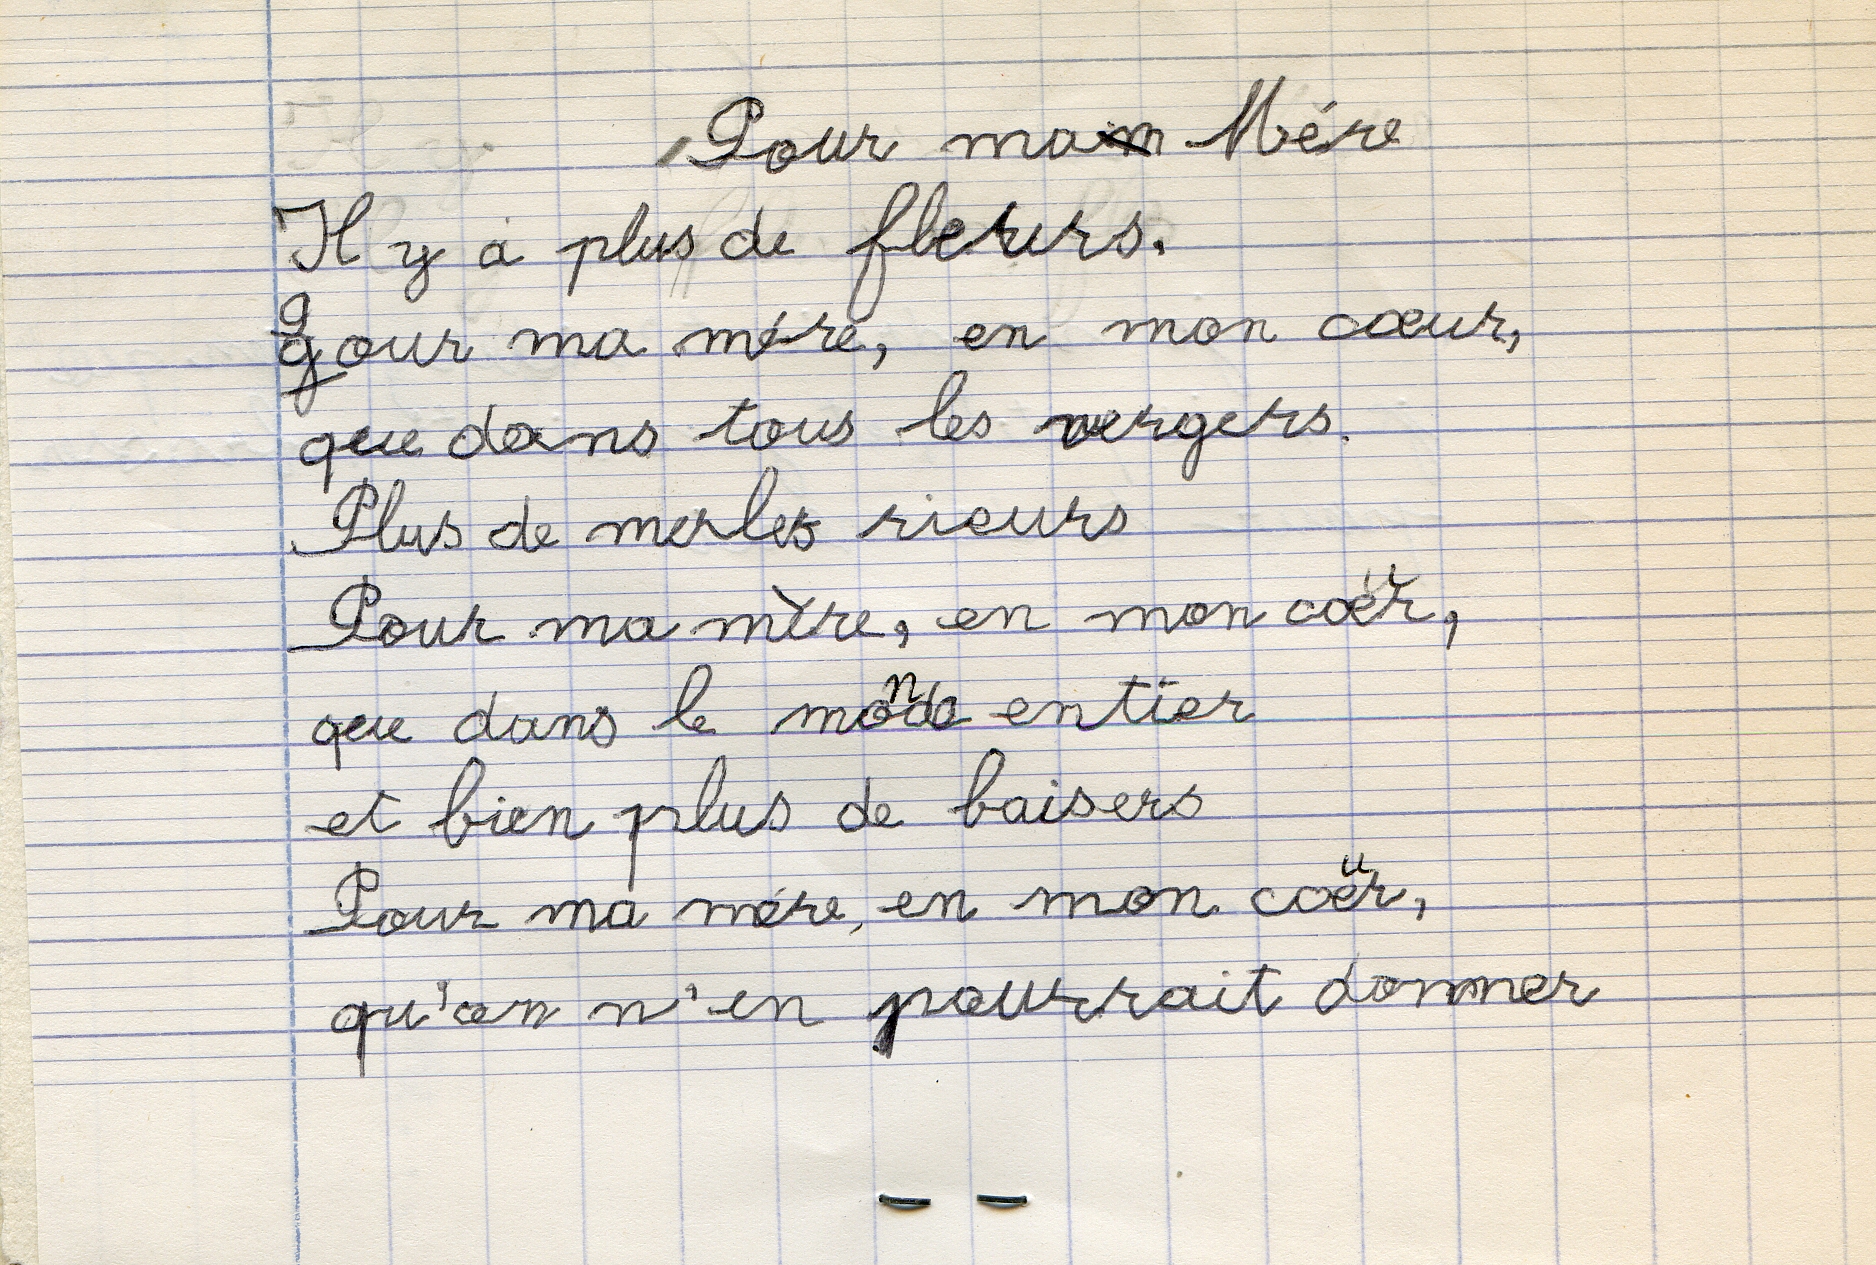 Pour ma Mére
Il y a plus de fleurs.
Pour ma mére, en mon cœur,
que dans tous les vergers.
Plus de merles rieurs
Pour ma mère, en mon cœur,
que dans le monde entier
et bien plus de baisers
Pour ma mére, en mon cœur,
qu'on n'en pourrait donner